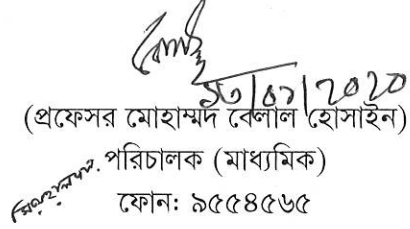 ১৩/০১/2020
(প্রফেসর মোহাম্মদ বেলাল হোসাইন)
পরিচালক (মাধ্যমিক)
ফোন: ৯৫৫৪৫৬৫